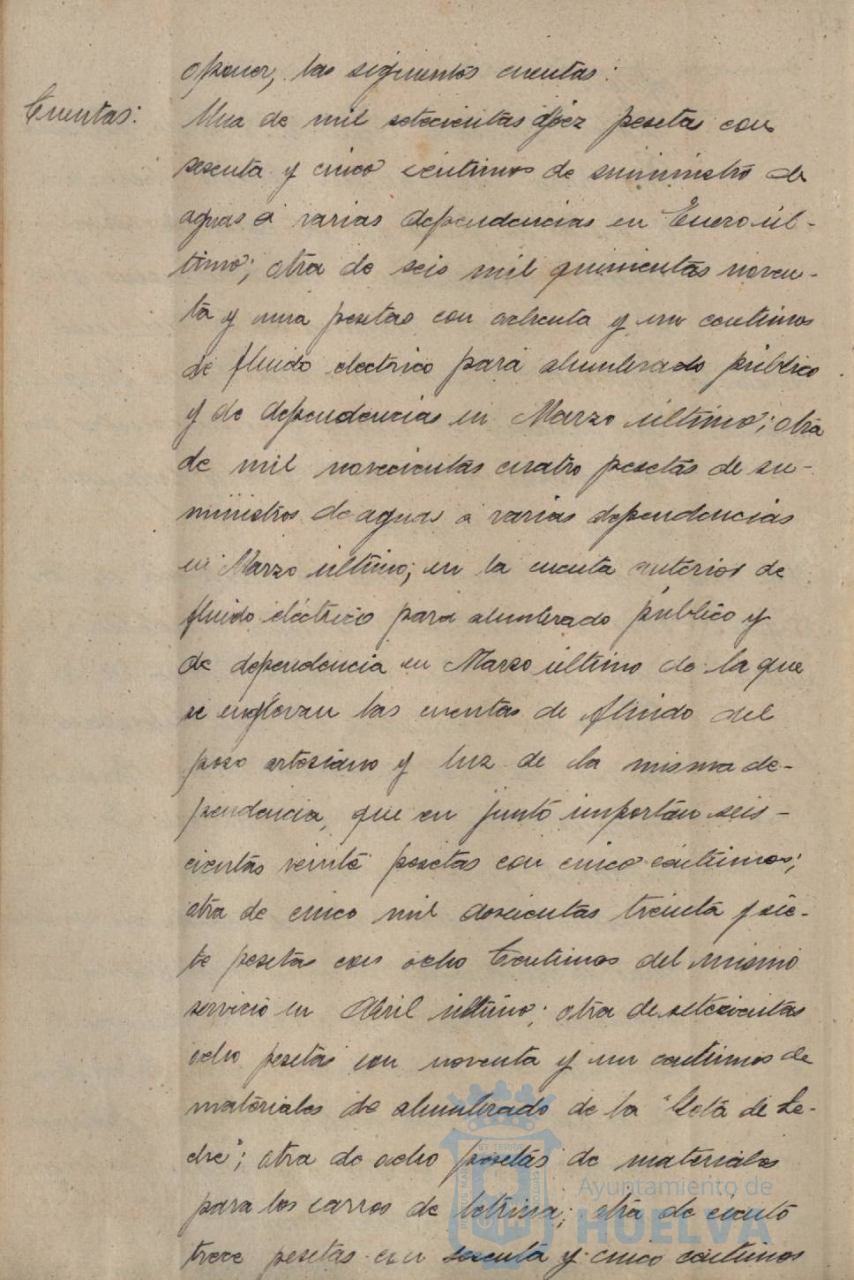 oponer, las siguientes cuentas:
Cuentas:
Una de mil setecientas diez pesetas con
sesenta y cinco centimos de suministro de
aguas a varias dependencias en Enero úl-
timo; otra de seis mil quinientas noven-
ta y una pesetas con ochenta y un centimos
de fluido electrico para alumbrado público
y de dependencias en Marzo último; otra
de mil novecientas cuatro pesetas de su-
ministros de aguas a varias dependencias
en Marzo último; en la cuenta anterior de
fluido eléctrico para alumbrado público y
de dependencia en Marzo último de la que
se englovan las cuentas de fluido del
pozo artesiano y luz de la misma de-
pendencia, que en junto importan seis-
cientas veinte pesetas con cinco centimos;
otra de cinco mil doscientas treinta y sie-
te pesetas con ocho Centimos del mismo
servicio en Abril último; otra de setecientas
ocho pesetas con noventa y un centimos de
materiales de alumbrado de la "Gota de Le-
che"; otra de ocho pesetas de materiales
para los carros de letrina; otra de ciento
trece pesetas con sesenta y cinco centimos
Ayuntamiento de
HUELVA